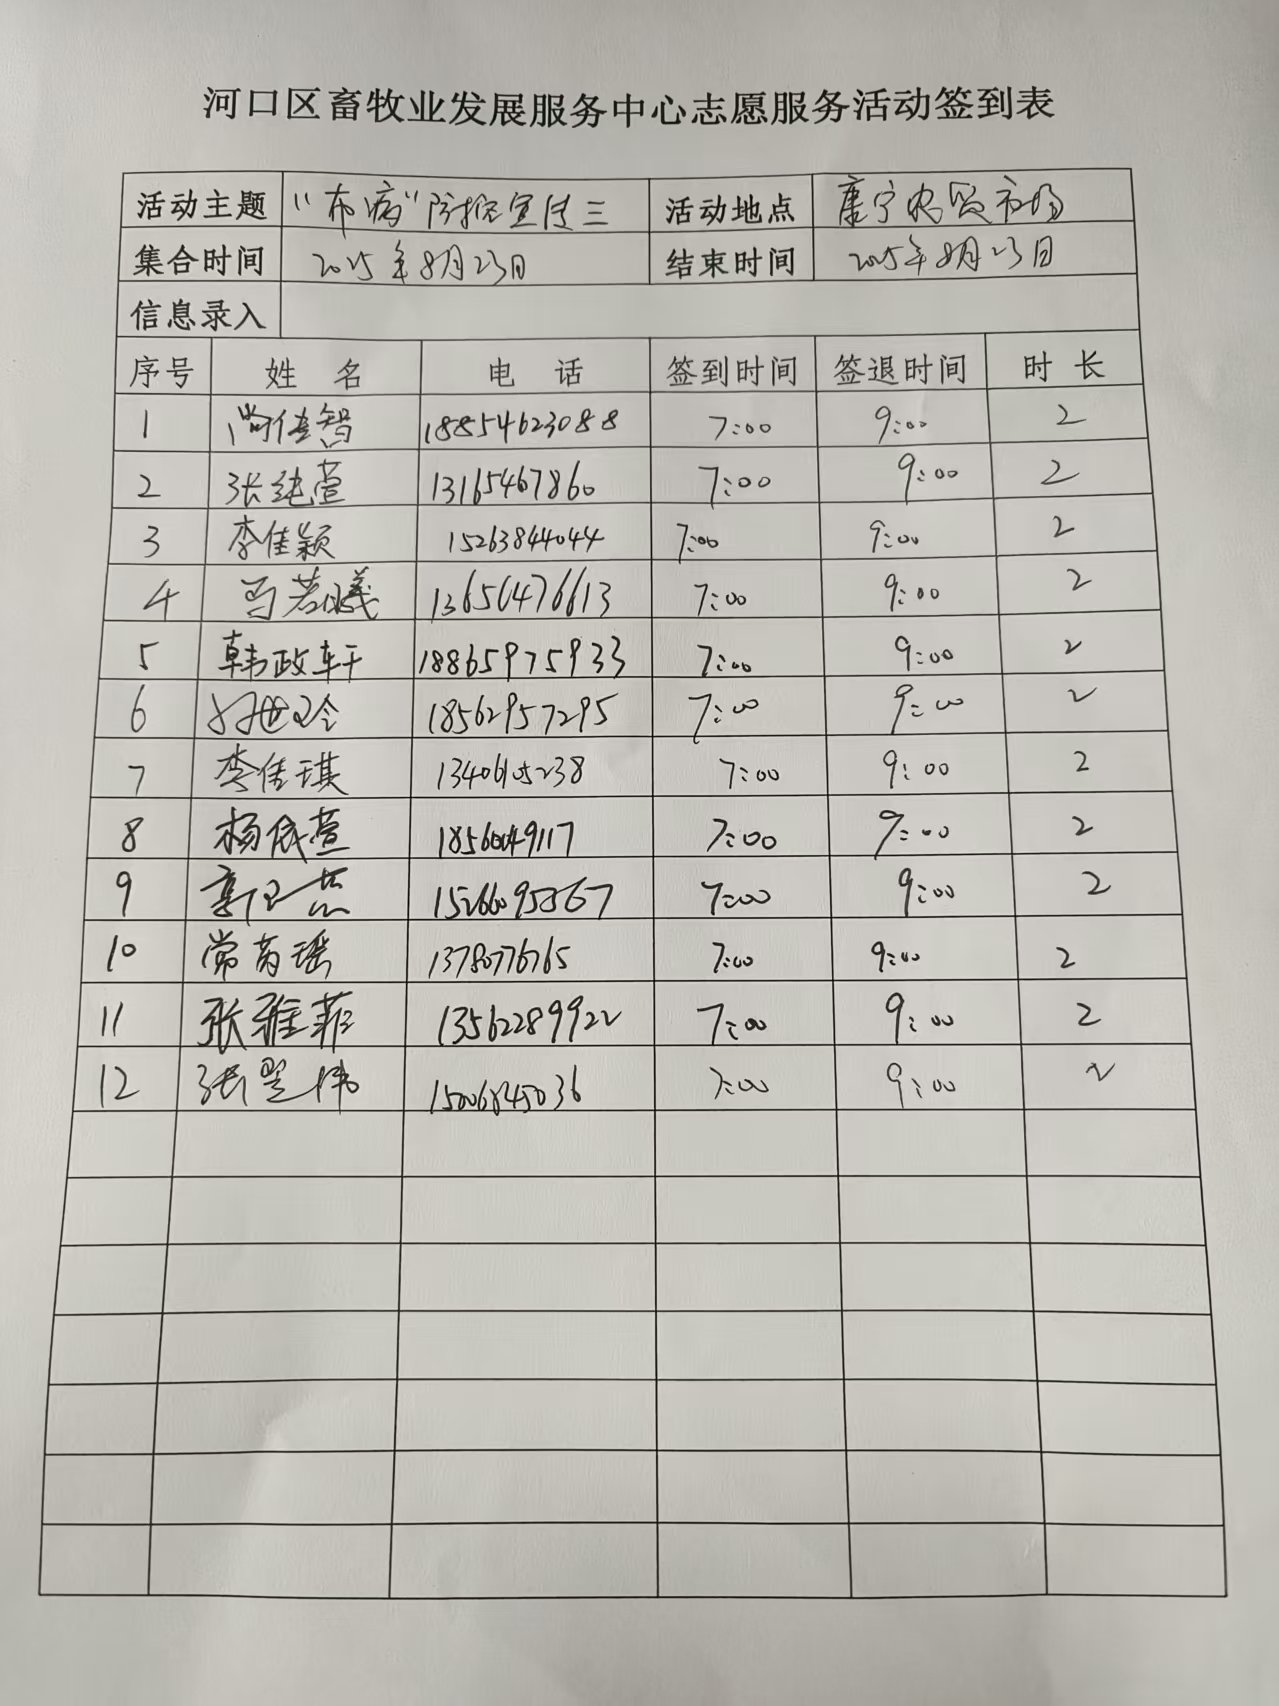 河口区畜牧业发展服务中心志愿服务活动签到表
活动主题 "布病"防控宣传三 活动地点 康宁农贸市场
集合时间 2025年8月23日 结束时间 2025年8月23日
信息录入
序号 姓名 电话 签到时间 签退时间 时长
1 尚佳智 18854623088 7:00 9:00 2
2 张纯萱 13165467860 7:00 9:00 2
3 李佳颖 15263844044 7:00 9:00 2
4 马若曦 13656476613 7:00 9:00 2
5 韩政轩 18865975933 7:00 9:00 2
6 18562957295 7:00 9:00 2
7 李佳琪 13406105238 7:00 9:00 2
8 杨依萱 18560049117 7:00 9:00 2
9 7:00 9:00 2
10 常芮瑶 13780776765 7:00 9:00 2
11 张雅菲 13562289922 7:00 9:00 2
12 张 伟 15006845036 7:00 9:00 2